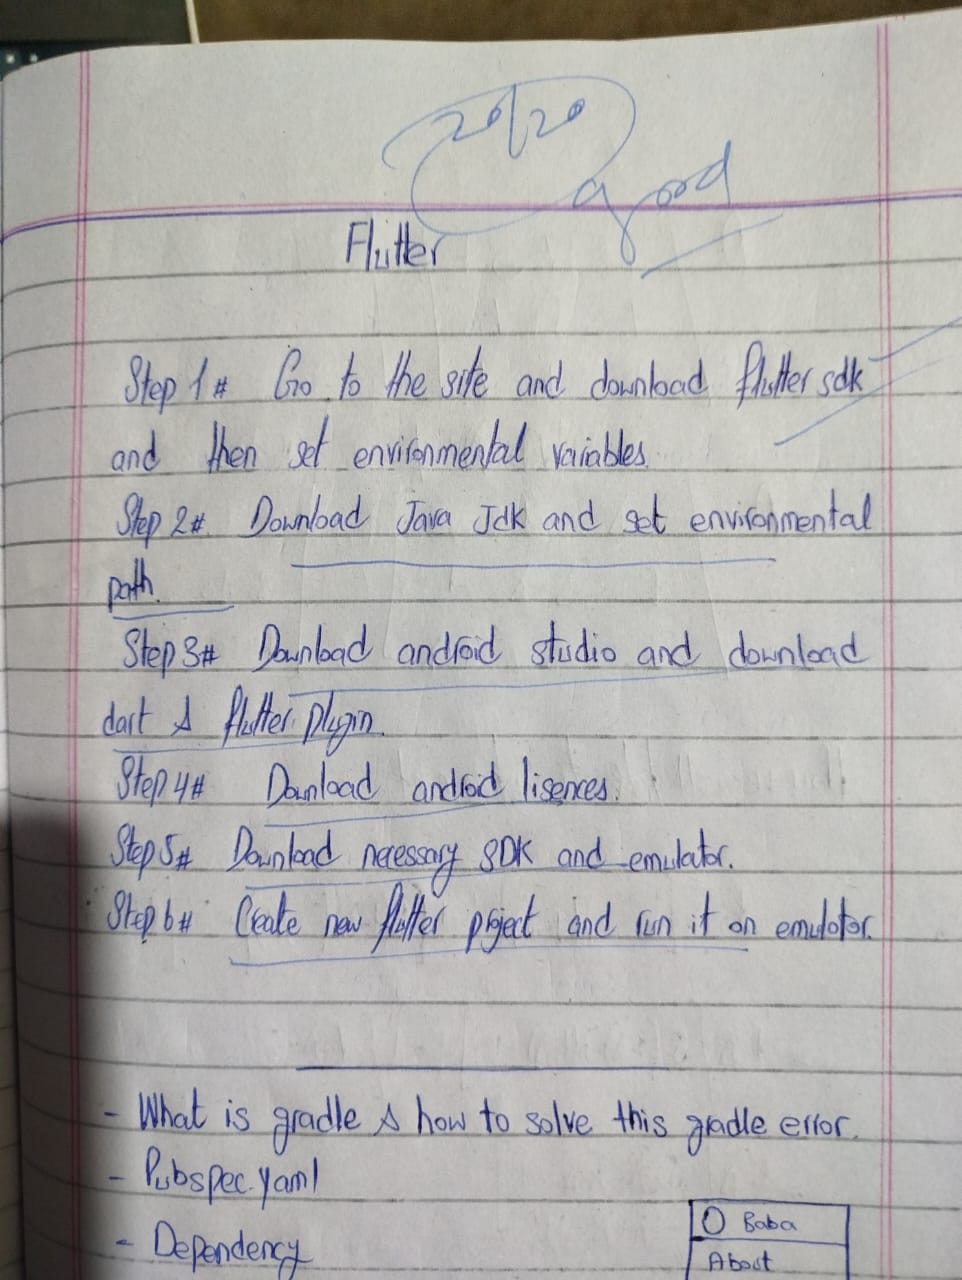 20/20
Good
Flutter
Step 1# Go to the site and download flutter sdk
and then set environmental variables.
Step 2# Download Java Jdk and set environmental
path.
Step 3# Download android studio and download
dart & flutter plugin.
Step 4# Download android lisences.
Step 5# Download necessary SDK and emulator.
Step 6# Create new flutter project and run it on emulator.
- What is gradle & how to solve this gradle error.
- Pubspec.yaml
- Dependency
Baba
About